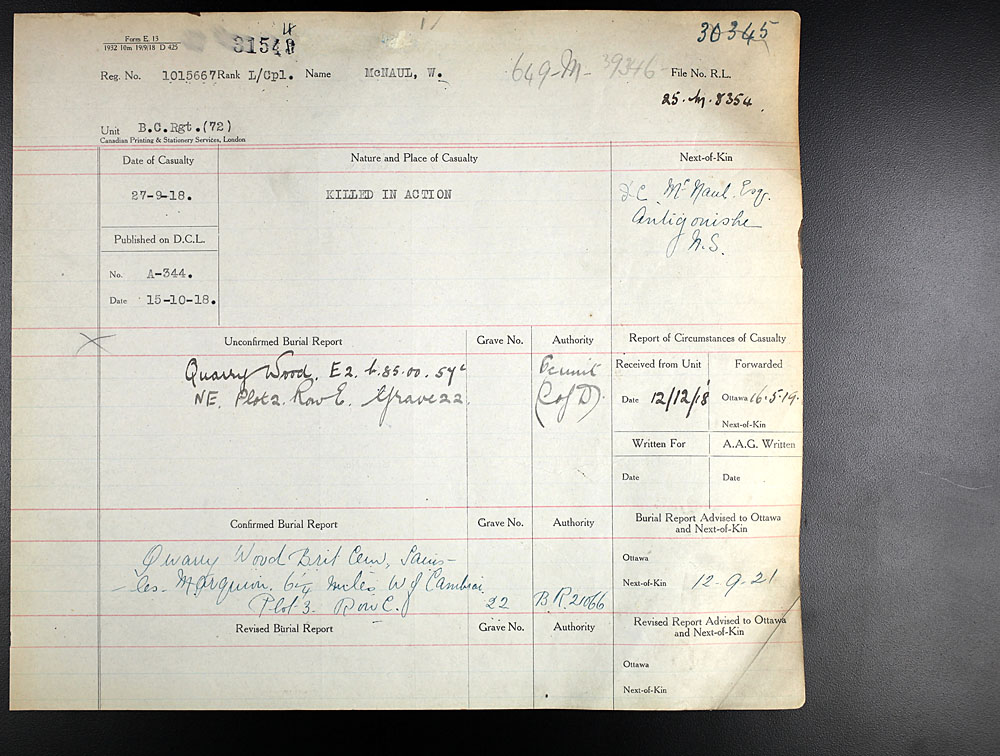 Form E. 13
1932 10m 19/9/18 D 425
30345
Reg. No. 1015667 Rank L/Cpl. Name McNAUL, W. 649-M-39346 File No. R.L.
25-M-8354
Unit B.C.Rgt.(72)
Canadian Printing & Stationery Services, London
Date of Casualty Nature and Place of Casualty Next-of-Kin
27-9-18. KILLED IN ACTION
McNaul Esq.
Antigonishe
N.S.
Published on D.C.L.
No. A-344.
Date 15-10-18.
Unconfirmed Burial Report Grave No. Authority Report of Circumstances of Casualty
Quarry Wood. E2. b.85.00. 57c
NE. Plot 2. Row E. Grave 22.
Permit
(C of D)
Received from Unit Forwarded
Date 12/12/18 Ottawa 16.5.19.
Next-of-Kin
Written For A.A.G. Written
Date Date
Confirmed Burial Report Grave No. Authority Burial Report Advised to Ottawa
and Next-of-Kin
Quarry Wood Brit Cem, Sains-
-les-Marquion. 6¼ miles W of Cambrai.
Plot 3. Row C. 22 B.R.21066
Ottawa
Next-of-Kin 12-9-21
Revised Burial Report Grave No. Authority Revised Report Advised to Ottawa
and Next-of-Kin
Ottawa
Next-of-Kin